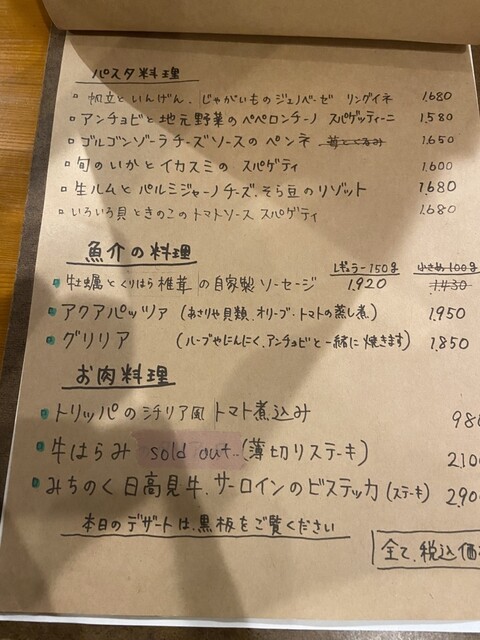 パスタ料理
帆立といんげん、じゃがいものジェノベーゼ リングイネ 1.680
アンチョビと地元野菜のペペロンチーノ スパゲッティーニ 1,580
ゴルゴンゾーラチーズソースのペンネ 苺とくるみ 1.650
旬のいかとイカスミの スパゲティ 1.600
生ハムとパルミジャーノチーズ、そら豆のリゾット 1.680
いろいろ貝ときのこのトマトソース スパゲティ 1.680
魚介の料理
レギュラー150g 小さめ100g
牡蠣とくりはら椎茸の自家製ソーセージ 1.920 1.430
アクアパッツァ (あさりや貝類、オリーブ・トマトの蒸し煮) 1,950
グリリア (ハーブやにんにく、アンチョビと一緒に焼きます) 1,850
お肉料理
トリッパのシチリア風トマト煮込み 980
牛はらみ sold out..(薄切りステーキ) 2.100
みちのく日高見牛、サーロインのビステッカ (ステーキ) 2,900
本日のデザートは、黒板をご覧ください
全て、税込価